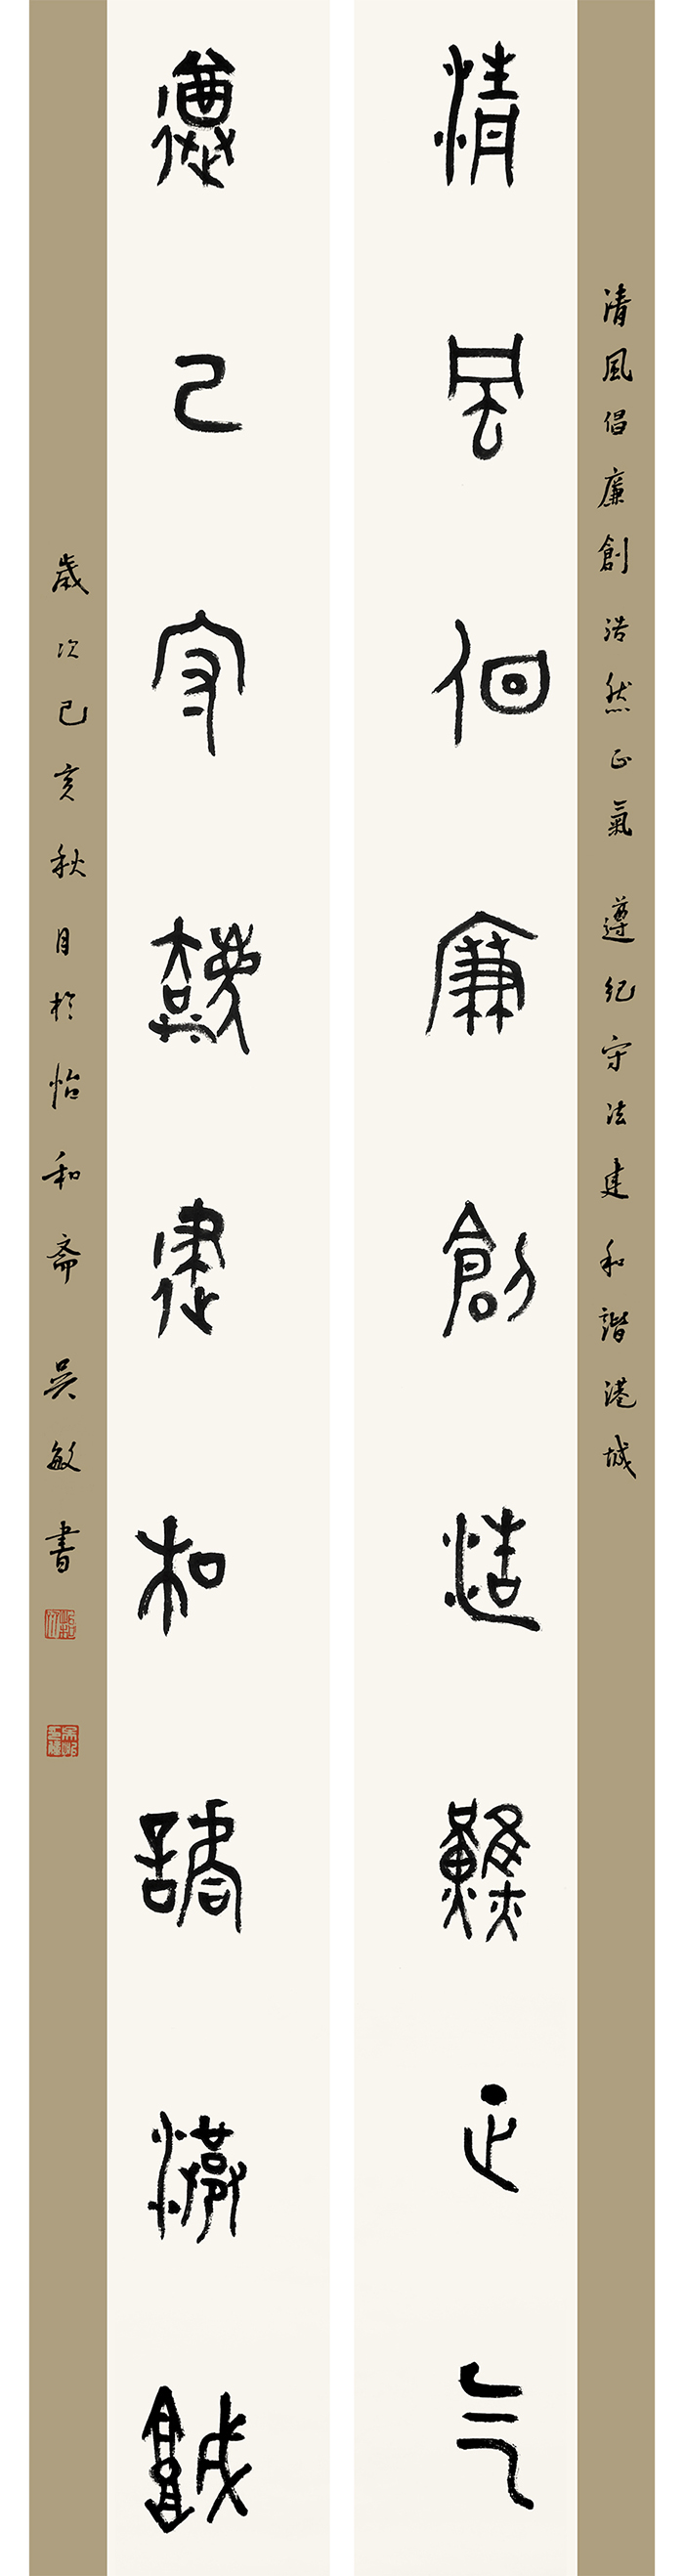 清風倡廉創浩然正氣 遵紀守法建和諧港城
清風倡廉創浩然正气
遵己守灋建和諧港城
歲次己亥秋月於怡和斎 吴敏書